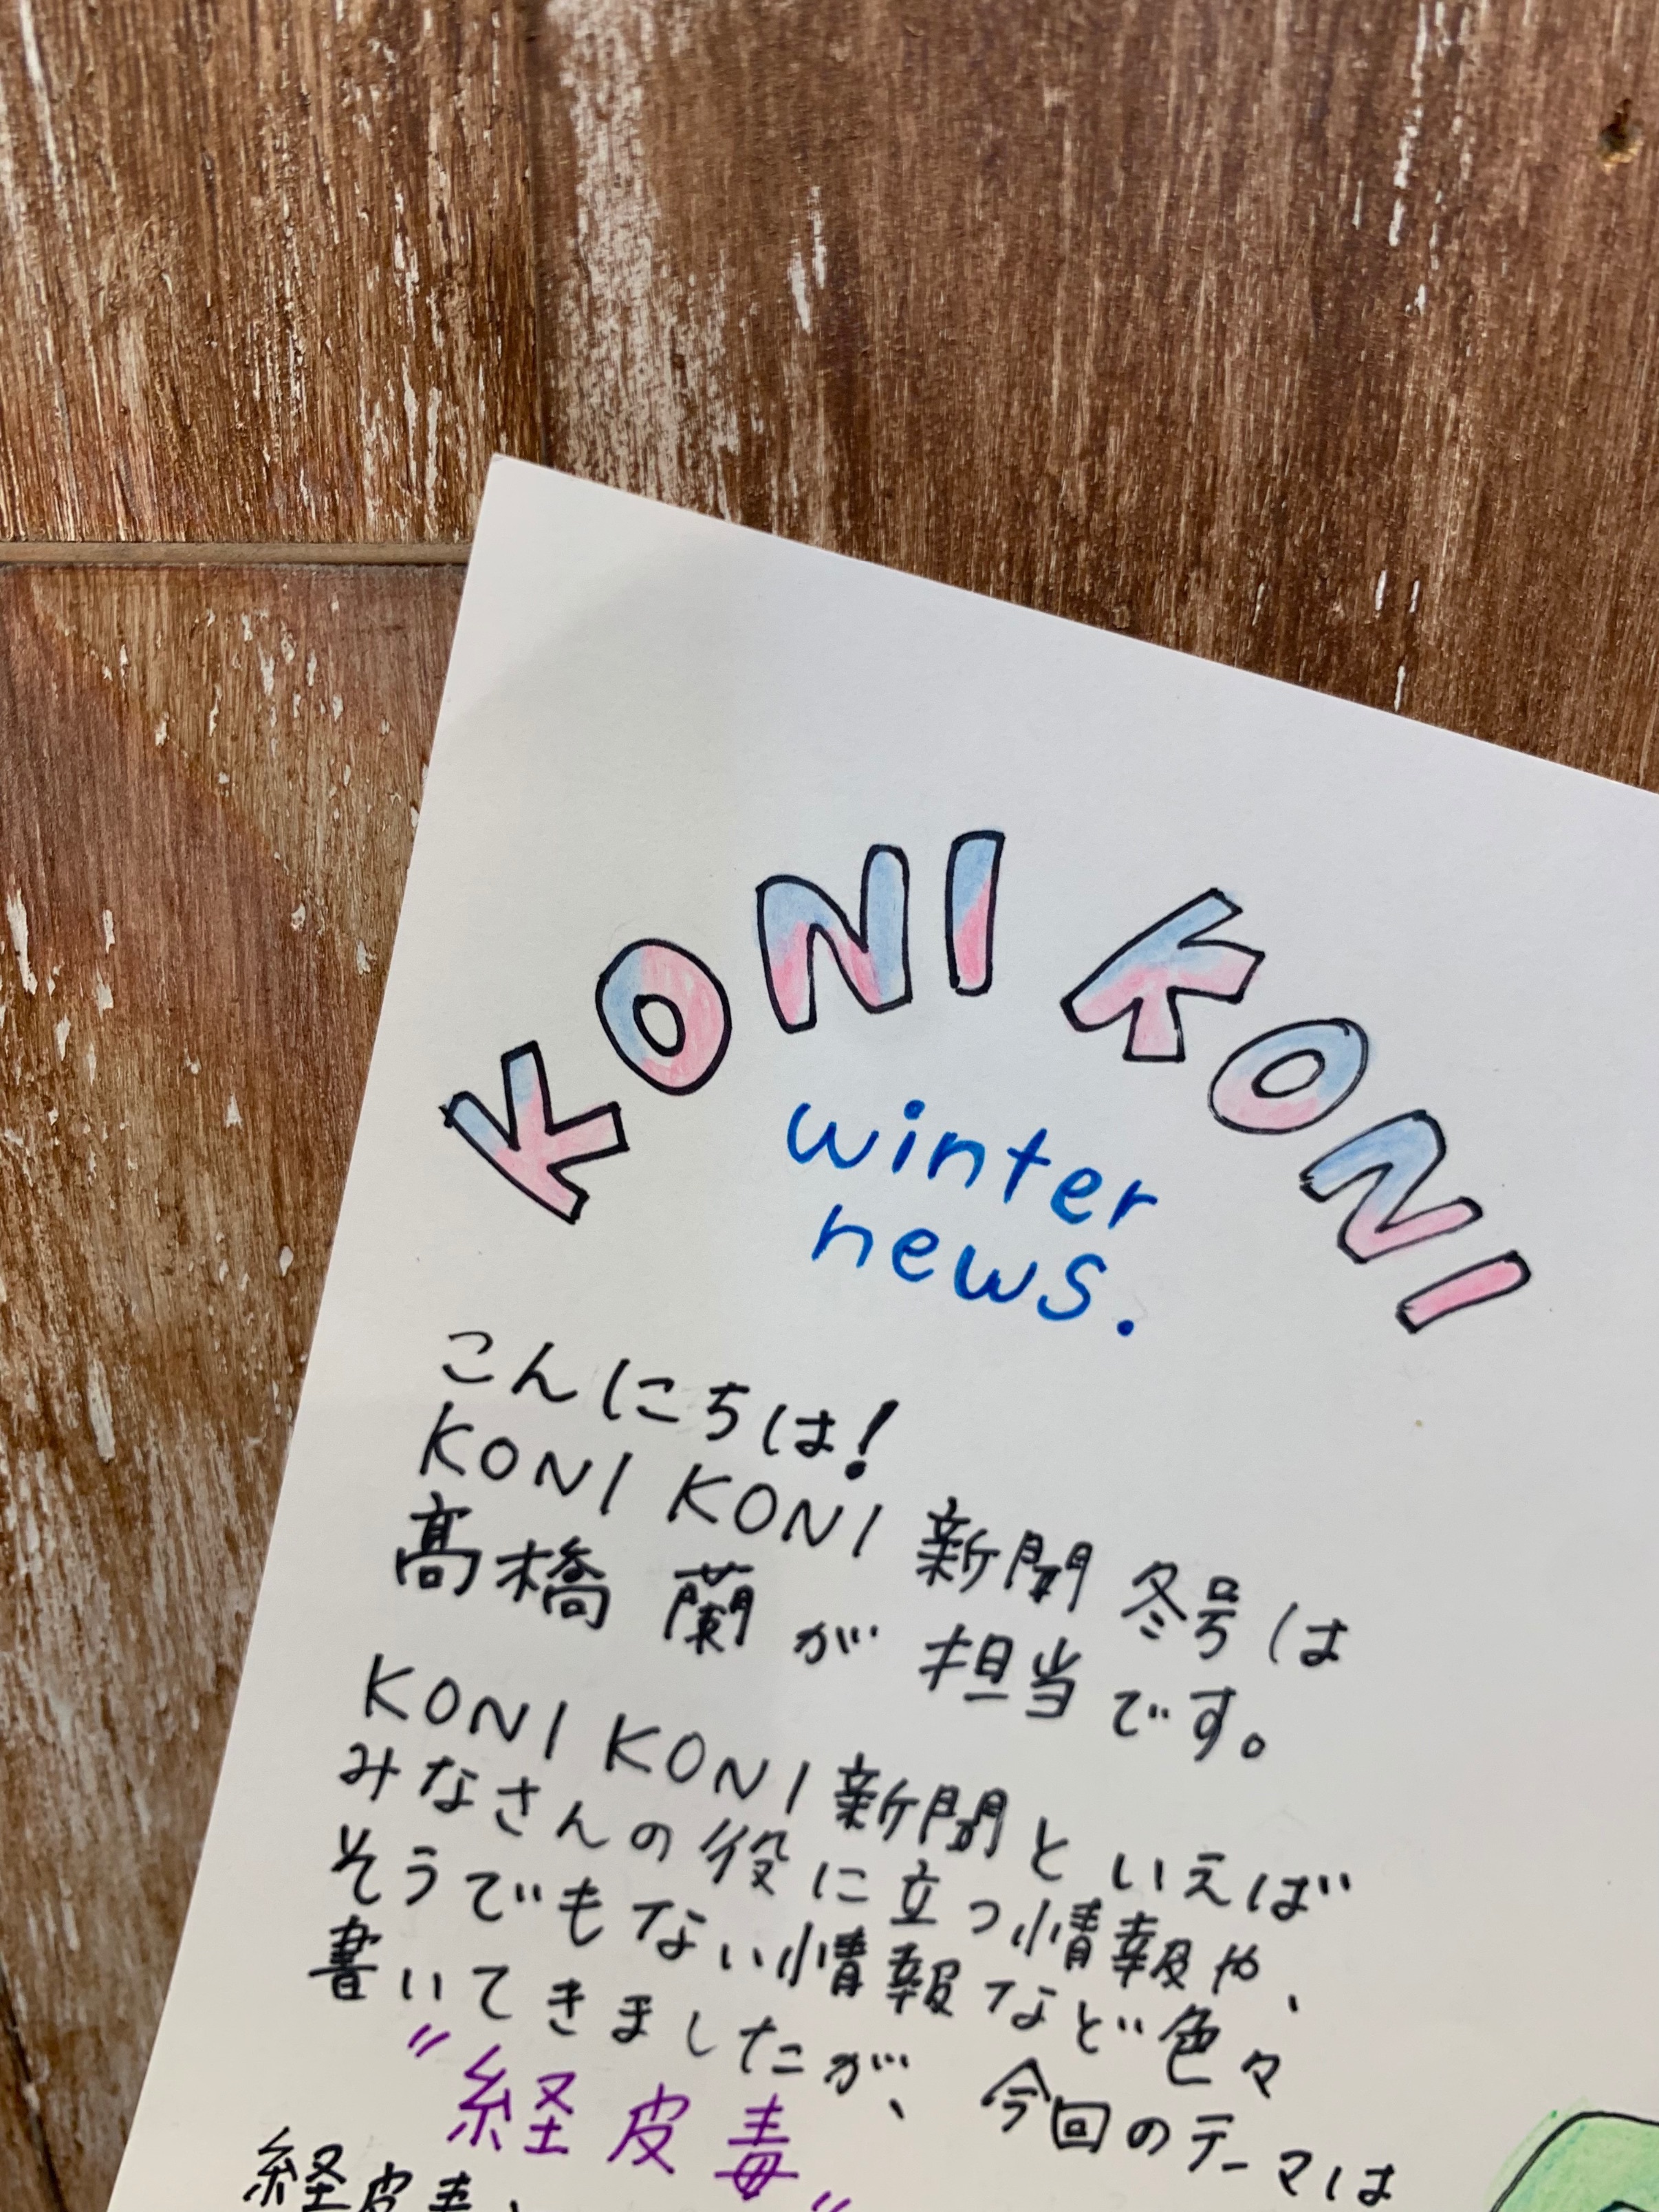 KONI KONI
winter
news.
こんにちは!
KONI KONI 新聞 冬号は
髙橋 蘭が担当です。
KONI KONI 新聞といえば
みなさんの役に立つ情報や、
そうでもない情報など色々
書いてきましたが、今回のテーマは
"経皮毒"
経皮毒